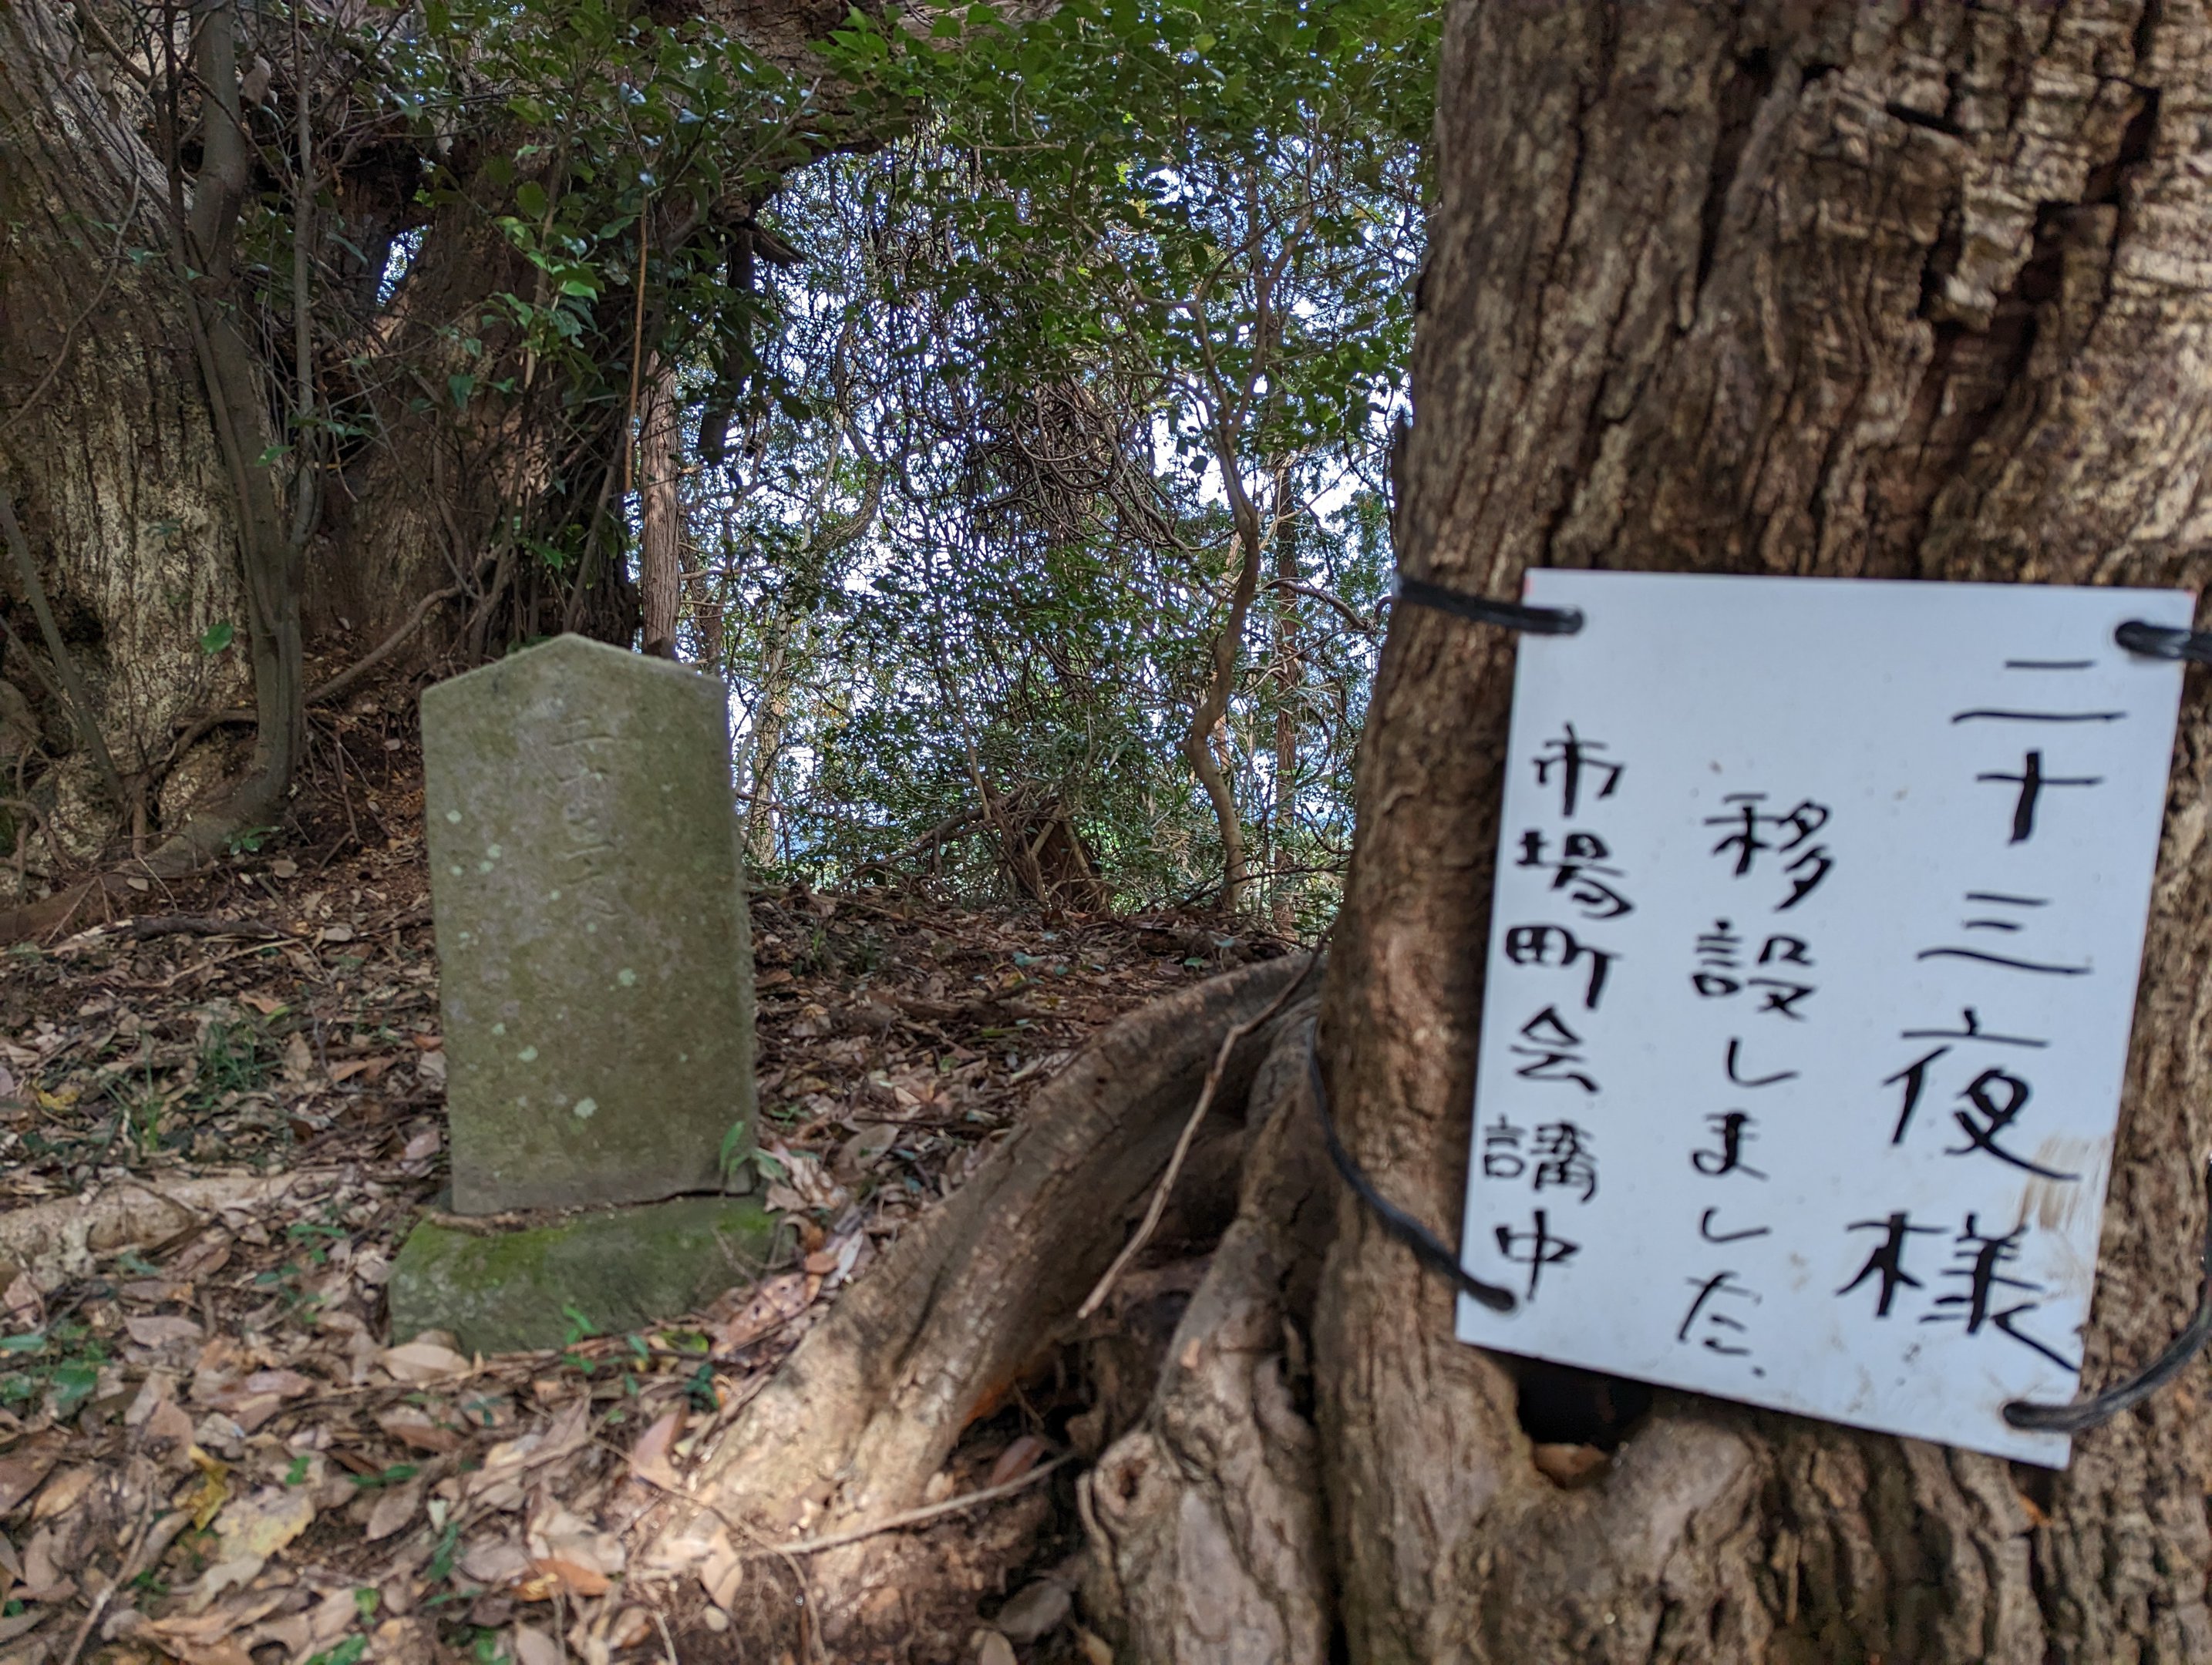 二十三夜様
移設しました.
市場町会講中